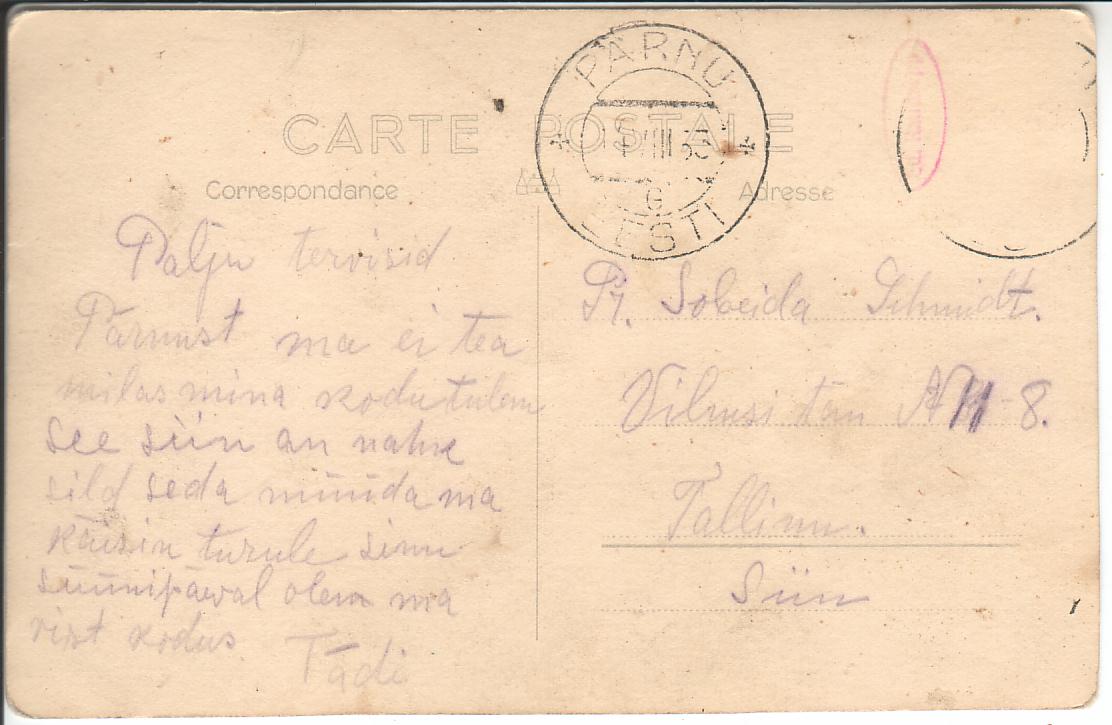 CARTE POSTALE
Correspondance
Adresse
PÄRNU
VIII
G
EESTI
Palju tervisid
Pärnust ma ei tea
milas mina kodu tulen
see siin an nahke
sild seda müüda ma
käisin turule sinu
süünipäwal olen ma
vist kodus
Tädi
Pr. Sobeida Schmidt.
Vilmsi tän N 11-8.
Tallinn.
Siin